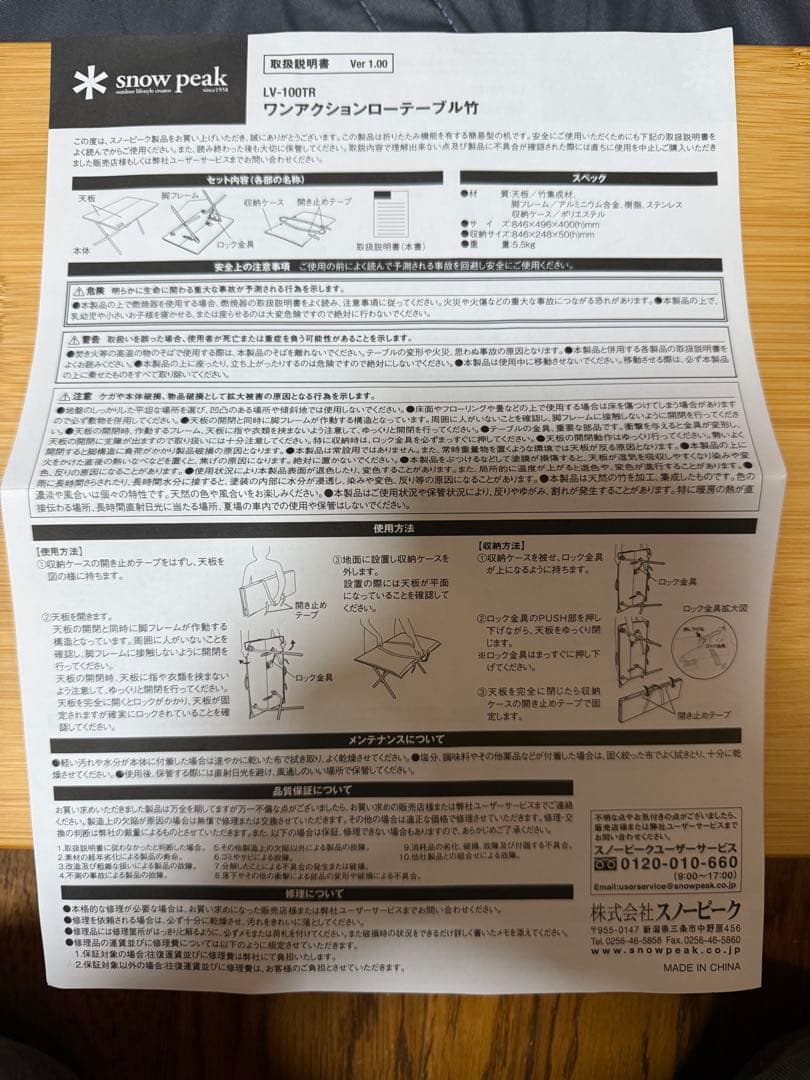 snow peak
outdoor lifestyle creator since1958
取扱説明書 Ver 1.00
LV-100TR
ワンアクションローテーブル竹
この度は、スノーピーク製品をお買い上げいただき、誠にありがとうございます。この製品は折りたたみ機能を有する簡易型の机です。安全にご使用いただくためにも下記の取扱説明書を
よく読んでからご使用ください。また、読み終わった後も大切に保管してください。取説内容で理解出来ない点及び製品に不具合が確認された際には直ちに使用を中止しご購入いただき
ました販売店様もしくは弊社ユーザーサービスまでお問い合わせください。
セット内容(各部の名称)
天板
脚フレーム
収納ケース
開き止めテープ
本体
ロック金具
取扱説明書(本書)
スペック
●材 質:天板/竹集成材、
脚フレーム/アルミニウム合金、樹脂、ステンレス
収納ケース/ポリエステル
●サ イ ズ:846×496×400(h)mm
●収納サイズ:846×248×50(h)mm
●重 量:5.5kg
安全上の注意事項 ご使用の前によく読んで予測される事故を回避し安全にご使用ください。
⚠危険 明らかに生命に関わる重大な事故が予測される行為を示します。
●本製品の上で燃焼器を使用する場合、燃焼器の取扱説明書をよく読み、注意事項に従ってください。火災や火傷などの重大な事故につながる恐れがあります。●本製品の上で、
乳幼児や小さいお子様を寝かせる、または座らせるのは大変危険ですので絶対に行わないでください。
⚠警告 取扱いを誤った場合、使用者が死亡または重症を負う可能性があることを示します。
●焚き火等の高温の物のそばで使用する際は、本製品のそばを離れないでください。テーブルの変形や火災、思わぬ事故の原因となります。●本製品と併用する各製品の取扱説明書を
よくお読みください。●本製品の上に座ったり、立ち上がったりするのは危険ですので絶対にしないでください。●本製品は使用中に移動させないでください。移動させる際は、必ず本製品
の上に乗せたものをすべて取り除いてください。
⚠注意 ケガや本体破損、物品破損として拡大被害の原因となる行為を示します。
●地盤のしっかりした平坦な場所を選び、凹凸のある場所や傾斜地では使用しないでください。●床面やフローリングや畳などの上で使用する場合は床を傷つけてしまう場合があります
ので必ず敷物を併用してください。●天板の開閉と同時に脚フレームが作動する構造となっています。周囲に人がいないことを確認し、脚フレームに接触しないように開閉を行ってくださ
い。●天板の開閉時、作動するフレーム、天板に指や衣類を挟まないよう注意して、ゆっくりと開閉してください。●テーブルの金具、重要な部品です。衝撃を与えると金具が変形し、
天板の開閉に支障が出ますので取り扱いには十分注意してください。特に収納時は、ロック金具を必ずまっすぐに押してください。●天板の開閉動作はゆっくり行ってください。勢いよく
開閉すると脚構造に負荷がかかり製品破損の原因となります。●本製品は常設用ではありません。また、常時重量物を置くような環境では天板が反る原因となります。●本製品の上に
火をかけた直後の熱いなべなどを置くと、焦げの原因になります。絶対に置かないでください。●本製品をぶつけるなどして塗膜が損傷すると、天板が湿気を吸収しやすくなり染みや変
色、反りの原因になることがあります。●使用状況により本製品表面が退色したり、変色することがあります。また、局所的に温度が上がると退色や、変色が進行することがあります。●
雨に長時間さらされたり、長時間水分に接すると、塗装の内部に水分が浸透し、染みや変色、反り等の原因になることがあります。●本製品は天然の竹を加工、集成したものです。色の
濃淡や風合いは個々の特性です。天然の色や風合いをお楽しみください。●本製品はご使用状況や保管状況により、反りやゆがみ、割れが発生することがあります。特に暖房の熱が直
接伝わる場所、長時間直射日光に当たる場所、夏場の車内での使用や保管はしないでください。
使用方法
【使用方法】
①収納ケースの開き止めテープをはずし、天板を
図の様に持ちます。
開き止め
テープ
②天板を開きます。
天板の開閉と同時に脚フレームが作動する
構造となっています。周囲に人がいないことを
確認し、脚フレームに接触しないように開閉
を行ってください。
天板の開閉時、天板に指や衣類を挟まない
よう注意して、ゆっくりと開閉を行ってください。
天板を完全に開くとロックがかかり、天板が固
定されますが確実にロックされていることを確
認してください。
ロック金具
③地面に設置し収納ケースを
外します。
設置の際には天板が平面
になっていることを確認して
ください。
【収納方法】
①収納ケースを被せ、ロック金具
が上になるように持ちます。
ロック金具
②ロック金具のPUSH部を押し
下げながら、天板をゆっくり閉
じます。
※ロック金具はまっすぐに押し下
げてください。
ロック金具拡大図
押し下げる
ロック金具
③天板を完全に閉じたら収納
ケースの開き止めテープで固
定します。
開き止めテープ
メンテナンスについて
●軽い汚れや水分が本体に付着した場合は速やかに乾いた布で拭き取り、よく乾燥させてください。●塩分、調味料やその他薬品などが付着した場合は、固く絞った布でよく拭きとり、十分に乾
燥させてください。●使用後、保管する際には直射日光を避け、風通しのいい場所で保管してください。
品質保証について
お買い求めいただきました製品は万全を期してますが万一不備な点がございましたら、お買い求めの販売店様または弊社ユーザーサービスまでご連絡
ください。製造上の欠陥が原因の場合は無償で修理または交換させていただきます。その他の場合は適正な価格で修理させていただきます。修理・交
換の判断は弊社の裁量によるものとさせていただきます。また、以下の場合は保証、修理できない場合もありますので、あらかじめご了承ください。
1.取扱説明書に従わなかったと判断した場合。
2.素材の経年劣化による製品の寿命。
3.改造及び粗雑な扱いによる製品の故障。
4.不測の事故による製品の故障。
5.その他製造上の欠陥以外による製品の故障。
6.ゴミやサビによる故障。
7.分解したことによる不具合の発生または破損。
8.落下やその他の衝撃による部品の変形や破損による不具合。
9.消耗品の劣化、破損、故障及び付随する不具合。
10.他社製品との組合せによる故障。
修理について
●本格的な修理が必要な場合は、お買い求めになった販売店様または弊社ユーザーサービスまでお問い合わせください。
●修理を依頼される場合は、必ず十分に乾燥させ、汚れをきれいに落としてください。
●修理品には修理箇所がはっきりと解るように、必ずメモまたは荷札を付けてください。また破損時の状況をできるだけ詳しく書いたメモを添えてください。
●修理品の運賃並びに修理費については以下のように規定させていただきます。
1.保証対象の場合:往復運賃並びに修理費は弊社にて負担いたします。
2.保証対象以外の場合:往復運賃並びに修理費は、お客様のご負担とさせていただきます。
不明な点やお気付きの点がございましたら、
販売店様または弊社ユーザーサービスまで
お問い合わせください。
スノーピークユーザーサービス
0120-010-660
(9:00〜17:00)
Email:userservice@snowpeak.co.jp
株式会社スノーピーク
〒955-0147 新潟県三条市中野原456
Tel.0256-46-5858 Fax.0256-46-5860
www.snowpeak.co.jp
MADE IN CHINA